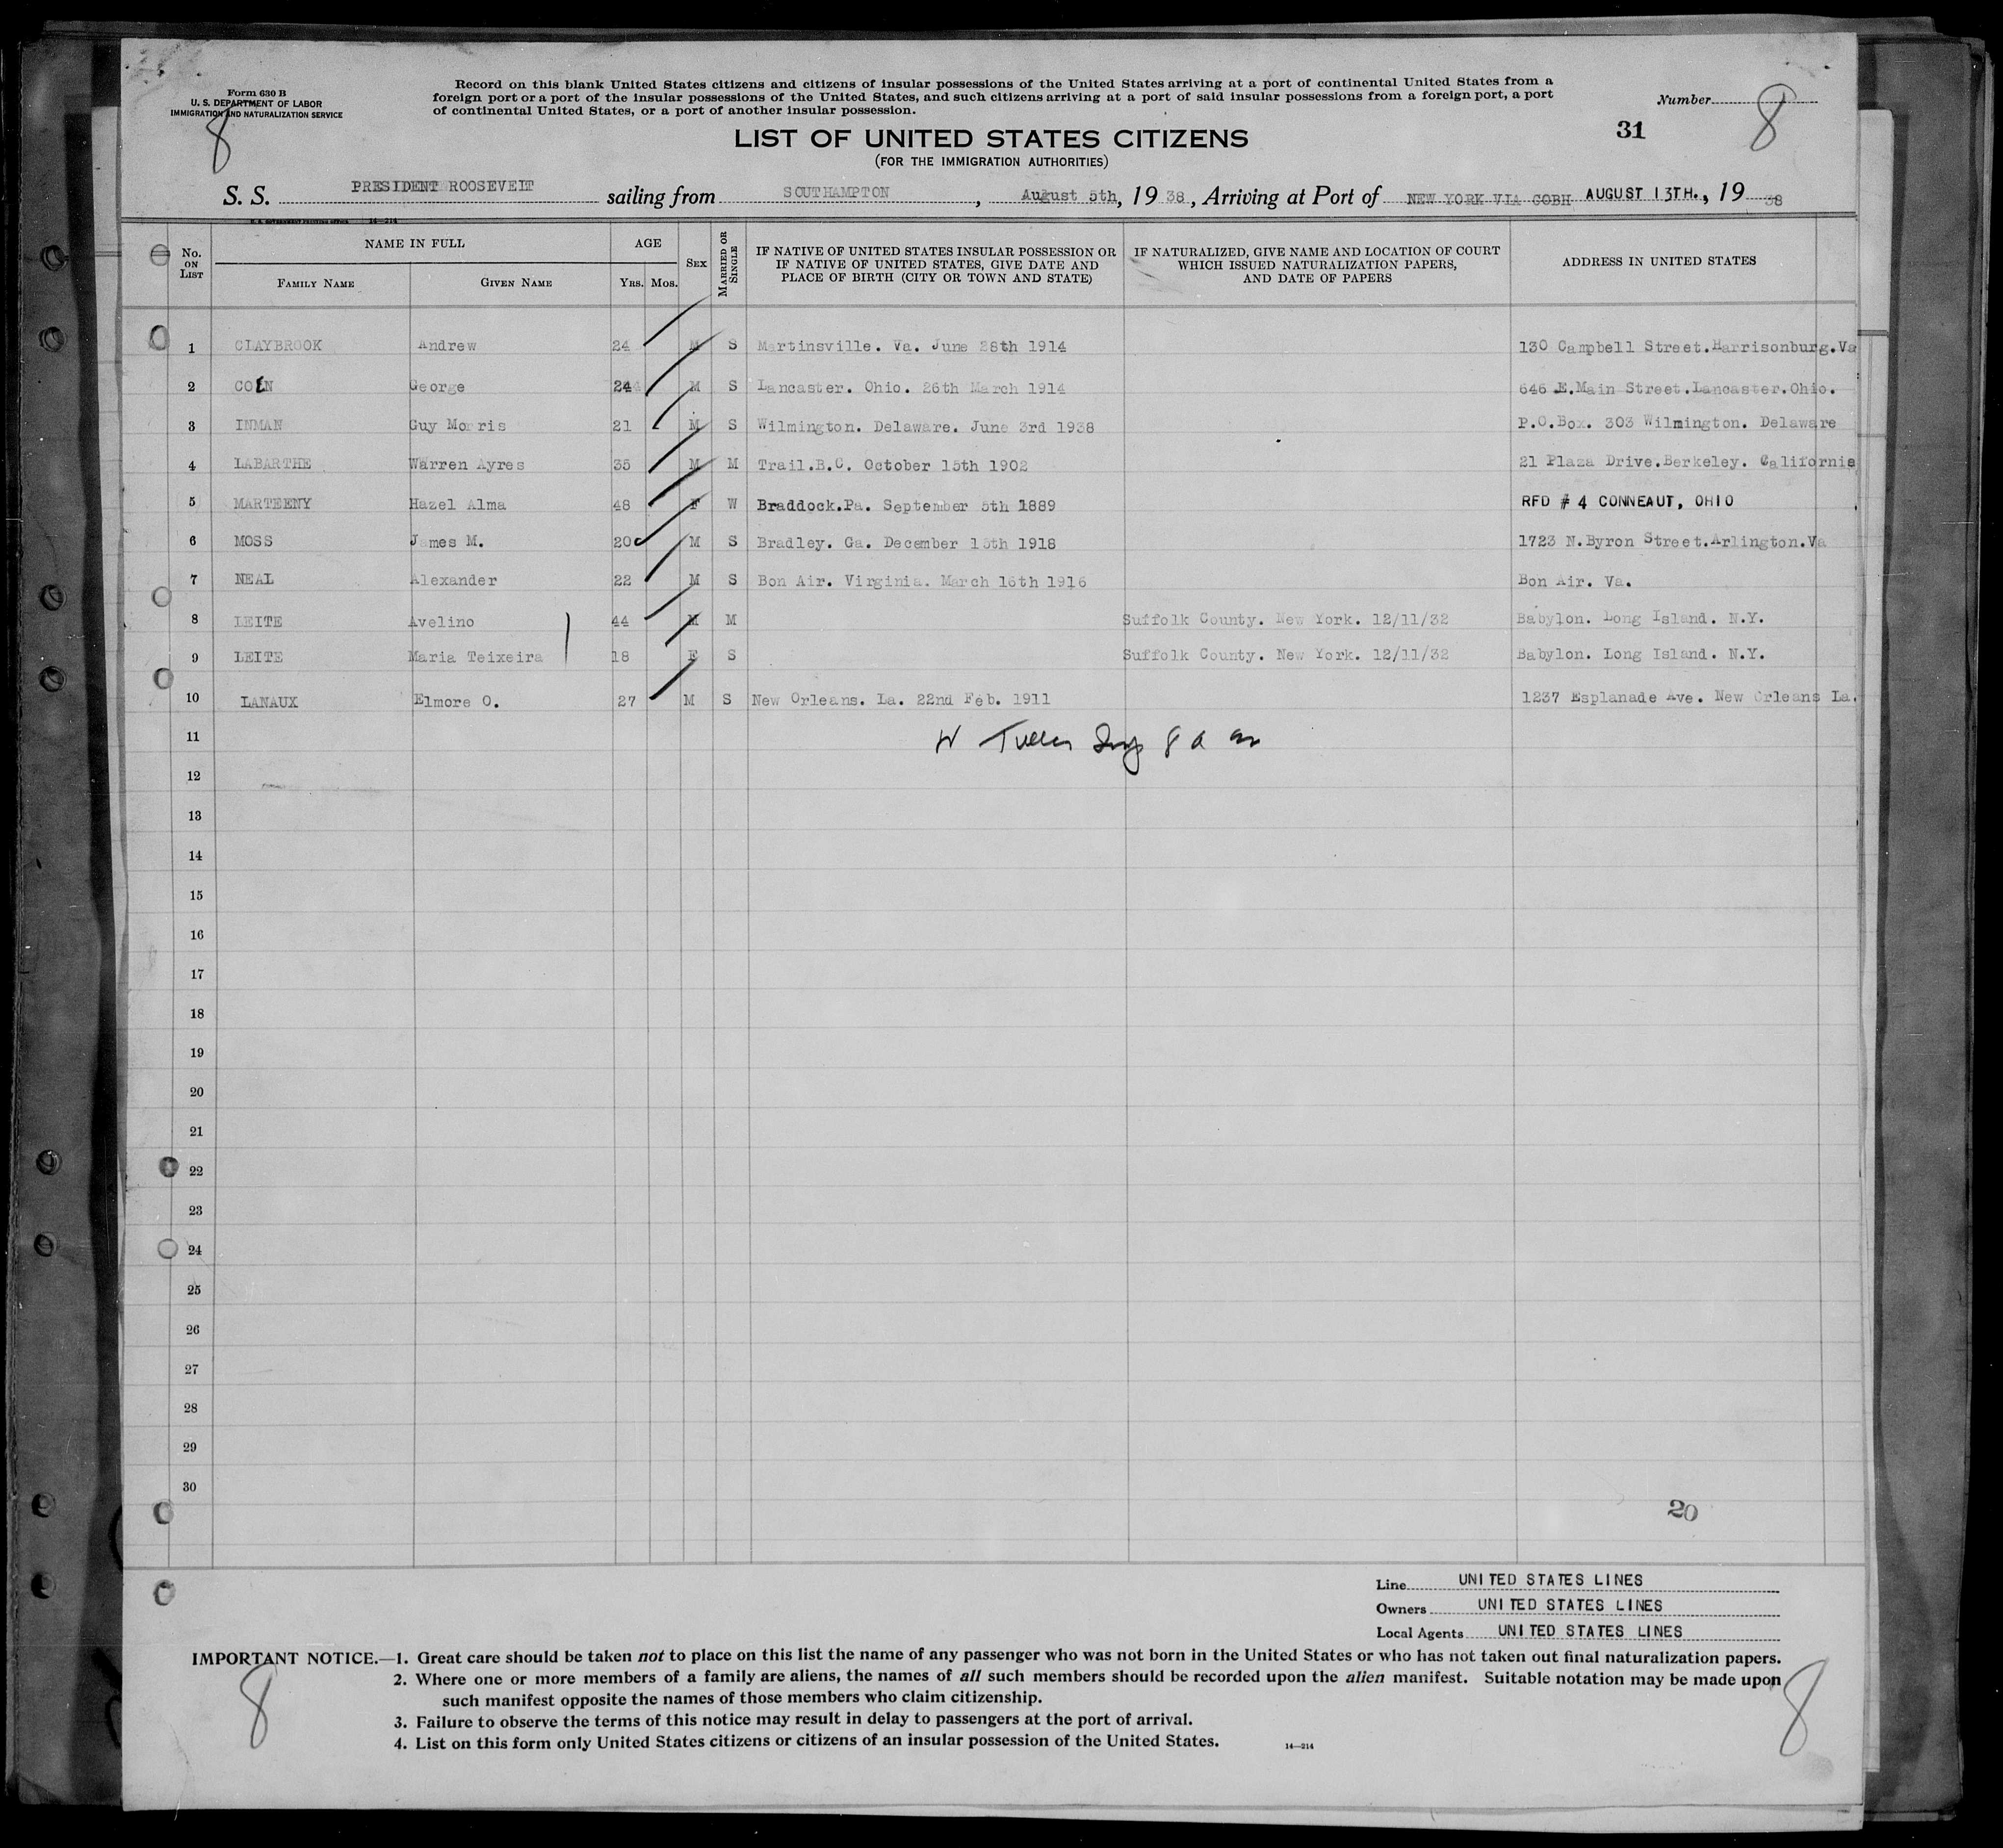 Form 630 B
U. S. DEPARTMENT OF LABOR
IMMIGRATION AND NATURALIZATION SERVICE
8
Record on this blank United States citizens and citizens of insular possessions of the United States arriving at a port of continental United States from a
foreign port or a port of the insular possessions of the United States, and such citizens arriving at a port of said insular possessions from a foreign port, a port
of continental United States, or a port of another insular possession.
Number
8
31
LIST OF UNITED STATES CITIZENS
(FOR THE IMMIGRATION AUTHORITIES)
S. S. PRESIDENT ROOSEVELT sailing from SOUTHAMPTON, August 5th, 19 38, Arriving at Port of NEW YORK VIA COBH AUGUST 13TH., 19 38
U. S. GOVERNMENT PRINTING OFFICE 14—214
No. ON LIST NAME IN FULL FAMILY NAME GIVEN NAME AGE YRS. MOS. SEX MARRIED OR SINGLE IF NATIVE OF UNITED STATES INSULAR POSSESSION OR IF NATIVE OF UNITED STATES, GIVE DATE AND PLACE OF BIRTH (CITY OR TOWN AND STATE) IF NATURALIZED, GIVE NAME AND LOCATION OF COURT WHICH ISSUED NATURALIZATION PAPERS, AND DATE OF PAPERS ADDRESS IN UNITED STATES
1 CLAYBROOK Andrew 24 M S Martinsville. Va. June 28th 1914 130 Campbell Street.Harrisonburg.Va
2 George 24 M S Lancaster. Ohio. 26th March 1914 646 E.Main Street.Lancaster.Ohio.
3 INMAN Guy Morris 21 M S Wilmington. Delaware. June 3rd 1938 P.O.Box. 303 Wilmington. Delaware
4 LABARTHE Warren Ayres 35 M M Trail.B.C. October 15th 1902 21 Plaza Drive.Berkeley. California
5 MARTEENY Hazel Alma 48 F W Braddock.Pa. September 5th 1889 RFD # 4 CONNEAUT, OHIO
6 MOSS James M. 20 M S Bradley. Ga. December 15th 1918 1723 N.Byron Street.Arlington.Va
7 NEAL Alexander 22 M S Bon Air. Virginia. March 16th 1916 Bon Air. Va.
8 LEITE Avelino 44 M M Suffolk County. New York. 12/11/32 Babylon. Long Island. N.Y.
9 LEITE Maria Teixeira 18 F S Suffolk County. New York. 12/11/32 Babylon. Long Island. N.Y.
10 LANAUX Elmore O. 27 M S New Orleans. La. 22nd Feb. 1911 1237 Esplanade Ave. New Orleans La.
11
12
13
14
15
16
17
18
19
20
21
22
23
24
25
26
27
28
29
30
20
Line UNITED STATES LINES
Owners UNITED STATES LINES
Local Agents UNITED STATES LINES
IMPORTANT NOTICE.—1. Great care should be taken not to place on this list the name of any passenger who was not born in the United States or who has not taken out final naturalization papers.
2. Where one or more members of a family are aliens, the names of all such members should be recorded upon the alien manifest. Suitable notation may be made upon
such manifest opposite the names of those members who claim citizenship.
3. Failure to observe the terms of this notice may result in delay to passengers at the port of arrival.
4. List on this form only United States citizens or citizens of an insular possession of the United States.
14—214
8
8